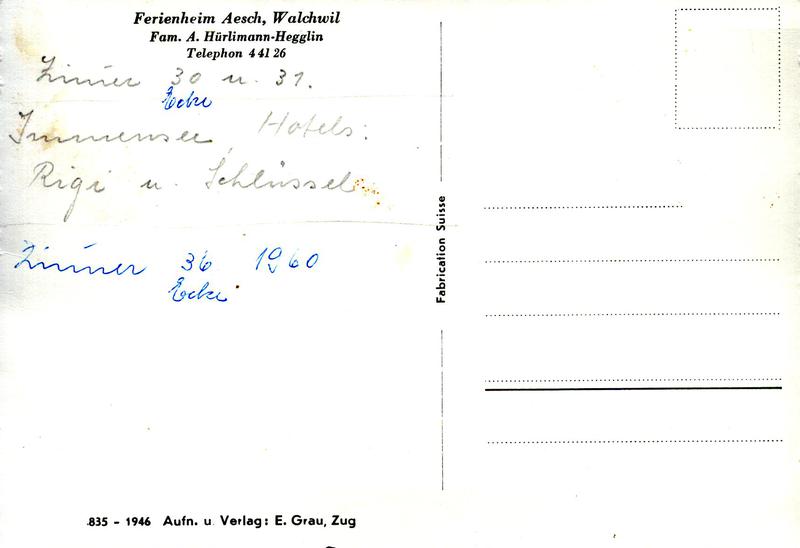 Ferienheim Aesch, Walchwil
Fam. A. Hürlimann-Hegglin
Telephon 4 41 26
Zimmer 30 u. 31.
Ecke
Immensee, Hotels:
Rigi u. Schlüssel
Zimmer 36 1960
Ecke
Fabrication Suisse
835 - 1946 Aufn. u. Verlag: E. Grau, Zug